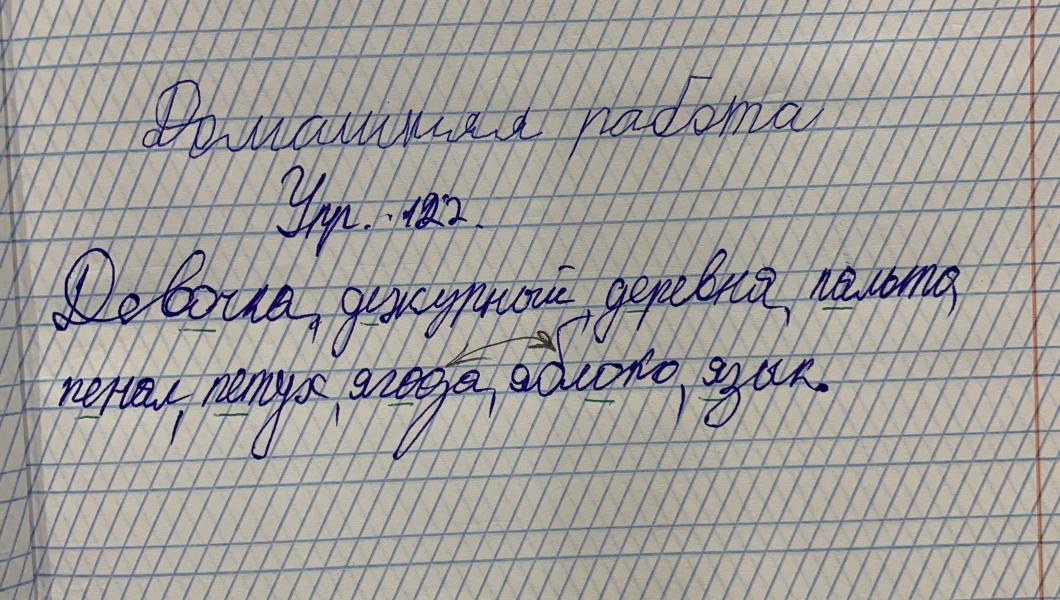 Домашняя работа
Упр. 127.
Девочка, дежурный, деревня, пальто,
пенал, петух, ягода, яблоко, язык.